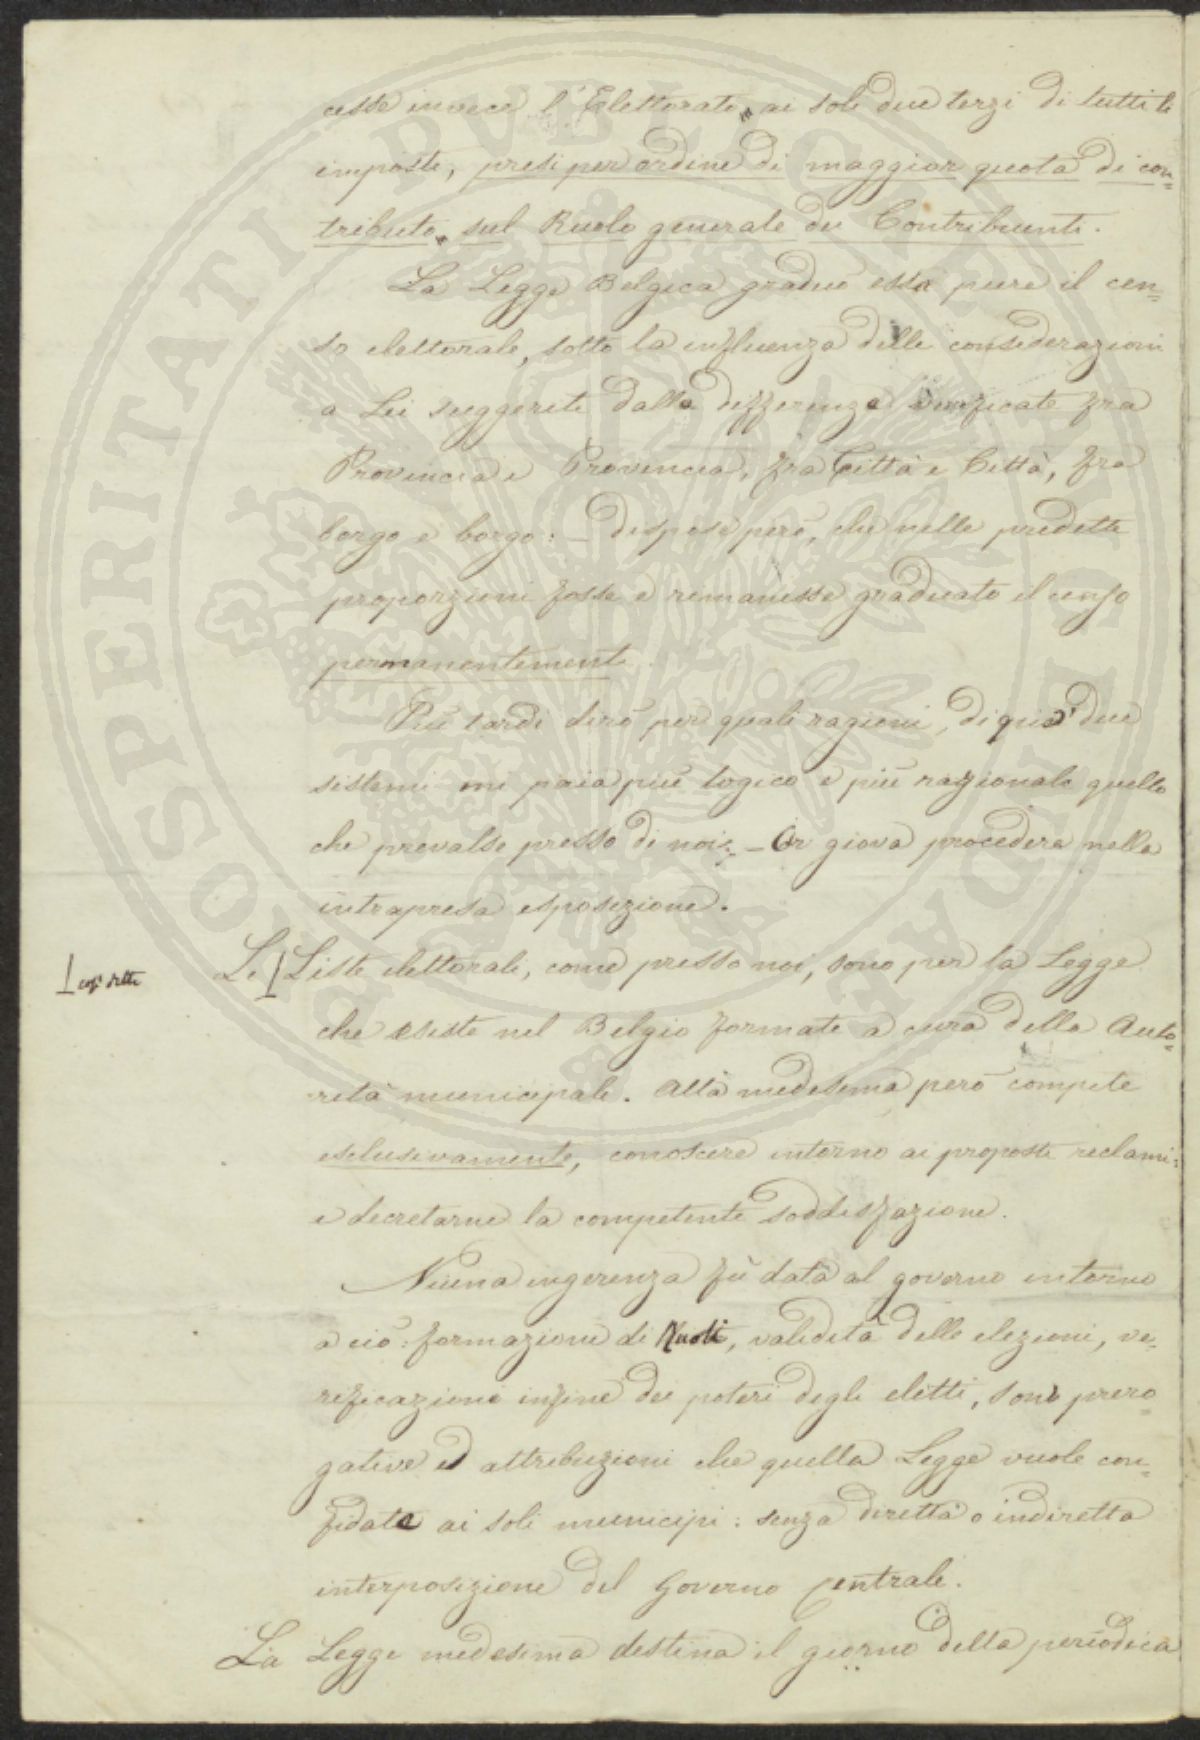 cesse invece l'Elettorato „ ai soli due terzi di tutti li
imposti, presi per ordine di maggior quota di con-
tributo „ sul Ruolo generale dei Contribuenti.
La Legge Belgica graduò essa pure il cen-
so elettorale, sotto la influenza delle considerazioni
a Lei suggerite dalle differenze verificate fra
Provincia e Provincia, fra Città e Città, fra
borgo e borgo: – dispose però, che nelle predette
proporzioni fosse e rimanesse graduato il censo
permanentemente.
Più tardi dirò per quali ragioni, di quei due
sistemi mi paia più logico e più razionale quello
che prevalse presso di noi: – Or giova procedere nella
intrapresa esposizione.
Le Liste elettorali, come presso noi, sono per la Legge
così dette
che esiste nel Belgio formate a cura della Auto-
rità municipale. Alla medesima però compete
esclusivamente, conoscere intorno ai proposti reclami:
e decretarne la competente soddisfazione.
Niuna ingerenza fù data al governo intorno
a ciò: formazione di Ruoli, validità delle elezioni, ve-
rificazione infine dei poteri degli eletti, sono prero-
gative ed attribuzioni che quella Legge vuole con-
fidate ai soli municipi: senza diretta o indiretta
interposizione del Governo Centrale.
La Legge medesima destina il giorno della periodica
PUBLICAE PROSPERITATI